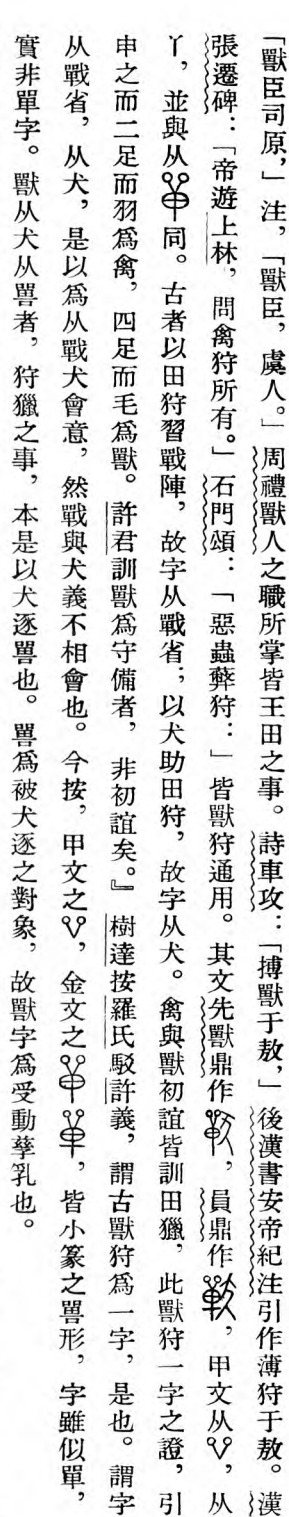 「獸臣司原，」注，「獸臣，虞人。」周禮獸人之職所掌皆王田之事。詩車攻：「搏獸于敖，」後漢書安帝紀注引作薄狩于敖。漢
張遷碑：「帝遊上林，問禽狩所有。」石門頌：「惡蟲弊狩：」皆獸狩通用。其文先獸鼎作，員鼎作，甲文从，从
丫，並與从同。古者以田狩習戰陣，故字从戰省；以犬助田狩，故字从犬。禽與獸初誼皆訓田獵，此獸狩一字之證，引
申之而二足而羽爲禽，四足而毛爲獸。許君訓獸爲守備者，非初誼矣。』樹達按羅氏駁許義，謂古獸狩爲一字，是也。謂字
从戰省，从犬，是以爲从戰犬會意，然戰與犬義不相會也。今按，甲文之，金文之，皆小篆之嘼形，字雖似單，
實非單字。獸从犬从嘼者，狩獵之事，本是以犬逐嘼也。嘼爲被犬逐之對象，故獸字爲受動孳乳也。